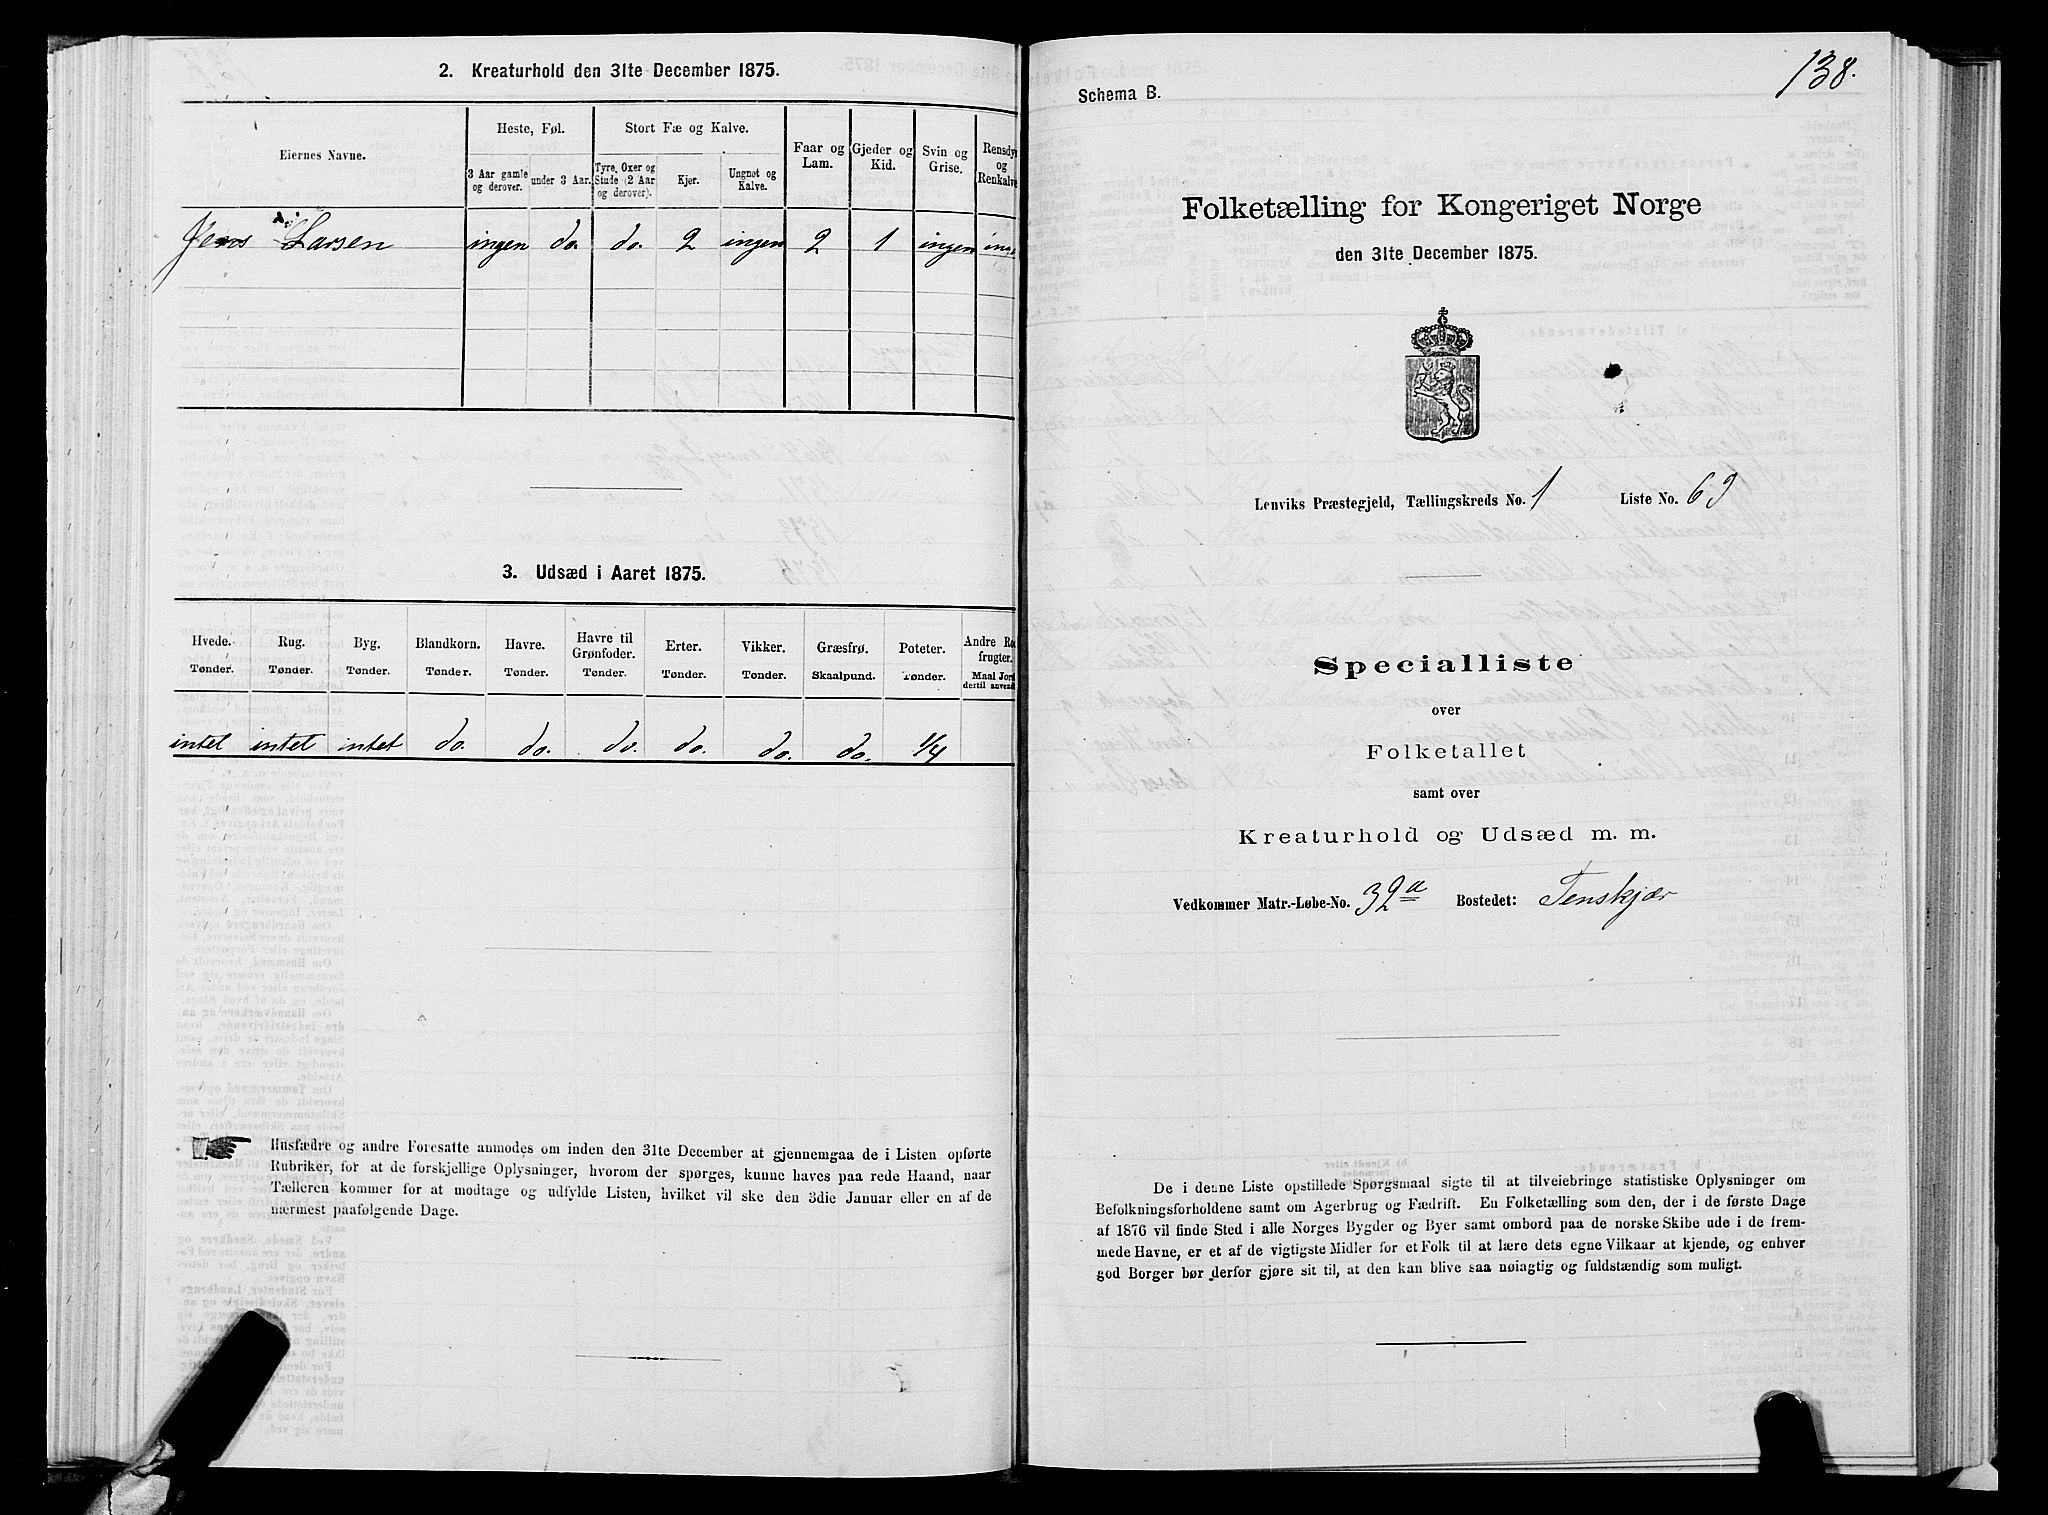 2. Kreaturhold den 31te December 1875.
Eiernes Navne.
Heste, Føl.
Stort Fæ og Kalve.
Faar og Lam.
Gjeder og Kid.
Svin og Grise.
Rensdyr og Renkalve
3 Aar gamle og derover.
under 3 Aar.
Tyre, Oxer og Stude (2 Aar og derover).
Kjør.
Ungnøt og Kalve.
Jens Larsen ingen do. do. 2 ingen 2 1 ingen
3. Udsæd i Aaret 1875.
Hvede. Rug. Byg. Blandkorn. Havre. Havre til Grønfoder. Erter. Vikker. Græsfrø. Poteter. Andre Ro
frugter.
Tønder. Tønder. Tønder. Tønder. Tønder. Tønder. Tønder. Tønder. Skaalpund. Tønder. Maal Jord
dertil anvend
intet intet intet do. do. do. do. do. do. 1/4
Husfædre og andre Foresatte anmodes om inden den 31te December at gjennemgaa de i Listen opførte
Rubriker, for at de forskjellige Oplysninger, hvorom der spørges, kunne haves paa rede Haand, naar
Tælleren kommer for at modtage og udfylde Listen, hvilket vil ske den 3die Januar eller en af de
nærmest paafølgende Dage.
138.
Schema B.
Folketælling for Kongeriget Norge
den 31te December 1875.
Lenviks Præstegjeld, Tællingskreds No. 1 Liste No. 69
Specialliste
over
Folketallet
samt over
Kreaturhold og Udsæd m. m.
Vedkommer Matr.-Løbe-No. 32a Bostedet: Tenskjær
De i denne Liste opstillede Spørgsmaal sigte til at tilveiebringe statistiske Oplysninger om
Befolkningsforholdene samt om Agerbrug og Fædrift. En Folketælling som den, der i de første Dage
af 1876 vil finde Sted i alle Norges Bygder og Byer samt ombord paa de norske Skibe ude i de frem-
mede Havne, er et af de vigtigste Midler for et Folk til at lære dets egne Vilkaar at kjende, og enhver
god Borger bør derfor gjøre sit til, at den kan blive saa nøiagtig og fuldstændig som muligt.